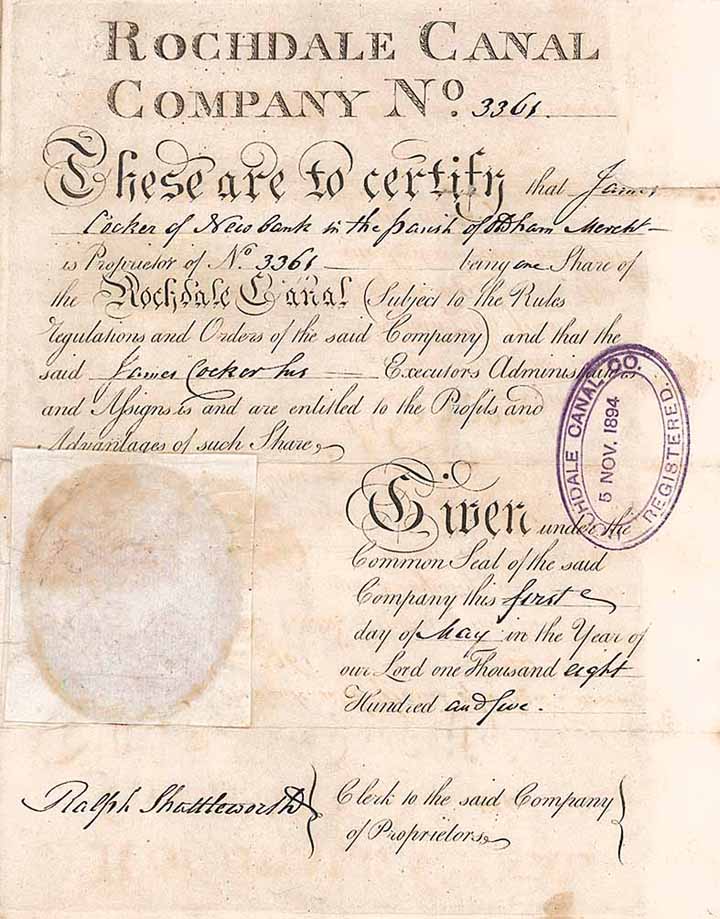 ROCHDALE CANAL
COMPANY No. 3361.
These are to certify that James
Cocker of Newbank in the parish of Oldham Mercht
is Proprietor of No. 3361 being one Share of
the Rochdale Canal (Subject to the Rules
regulations and Orders of the said Company) and that the
said James Cocker his Executors Administrators
and Assigns is and are entitled to the Profits and
Advantages of such Share
Given under the
Common Seal of the said
Company this first
day of May in the Year of
our Lord one Thousand eight
Hundred and five.
Ralph Shuttleworth
Clerk to the said Company
of Proprietors
CHDALE CANAL CO.
5 NOV. 1894
REGISTERED.